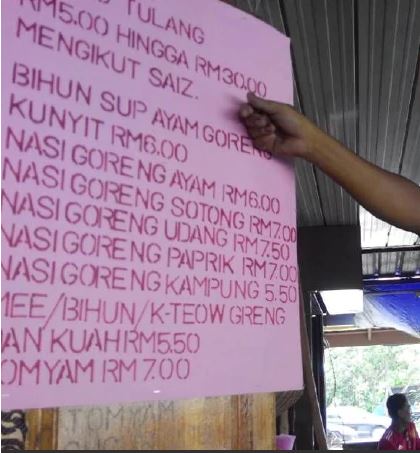 TULANG
RM5.00 HINGGA RM30.00
MENGIKUT SAIZ.
BIHUN SUP AYAM GORENG
KUNYIT RM6.00
NASI GORENG AYAM RM6.00
NASI GORENG SOTONG RM7.00
NASI GORENG UDANG RM7.50
NASI GORENG PAPRIK RM7.00
NASI GORENG KAMPUNG 5.50
MEE/BIHUN/K-TEOW GRENG
AN KUAH RM5.50
OMYAM RM7.00
TOMYAM